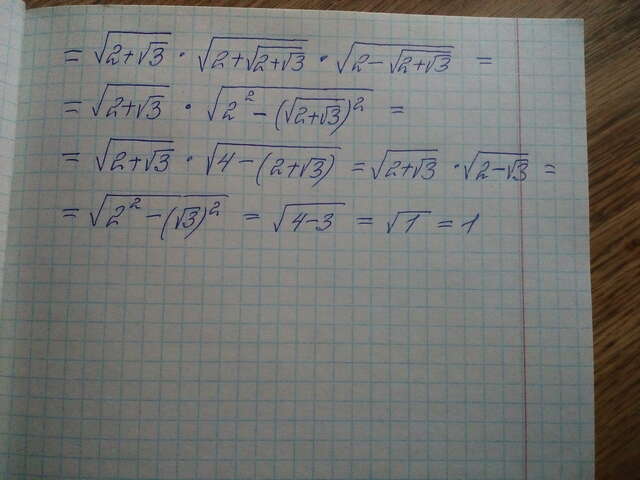 = √(2+√3) · √(2+√(2+√3)) · √(2-√(2+√3)) =
= √(2+√3) · √(2² - (√(2+√3))²) =
= √(2+√3) · √(4-(2+√3)) = √(2+√3) · √(2-√3) =
= √(2² - (√3)²) = √(4-3) = √1 = 1